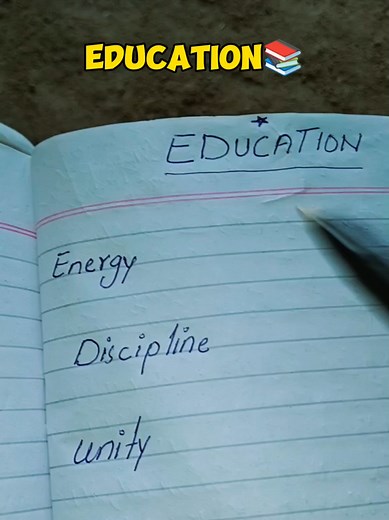 EDUCATION📚
EDUCATION
Energy
Discipline
Unity